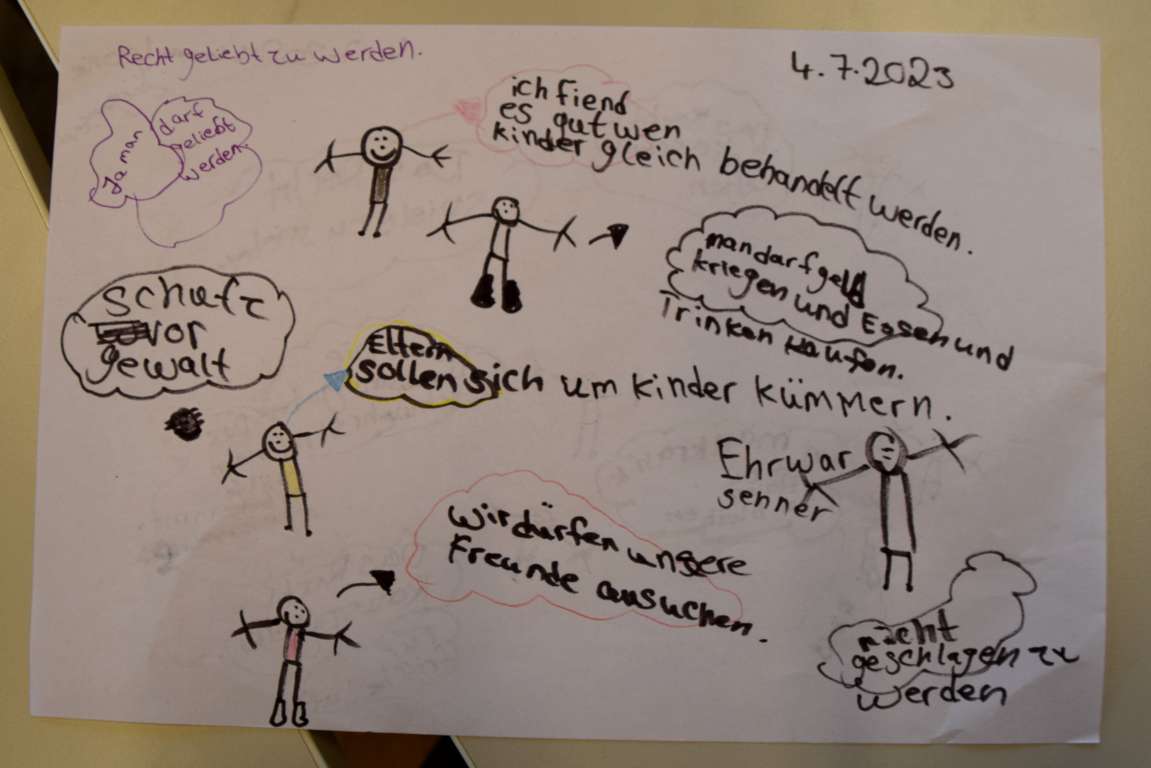 Recht geliebt zu werden.
4.7.2023
Ja man
darf
geliebt
werden.
ich fiend
es gut wen
kinder gleich behandelt werden.
man darf geld
kriegen und Essen und
Trinken kaufen.
schutz
vor
gewalt
Eltern
sollen sich um kinder kümmern.
Ehrwar
senner
wir dürfen unsere
Freunde aussuchen.
nicht
geschlagen zu
werden